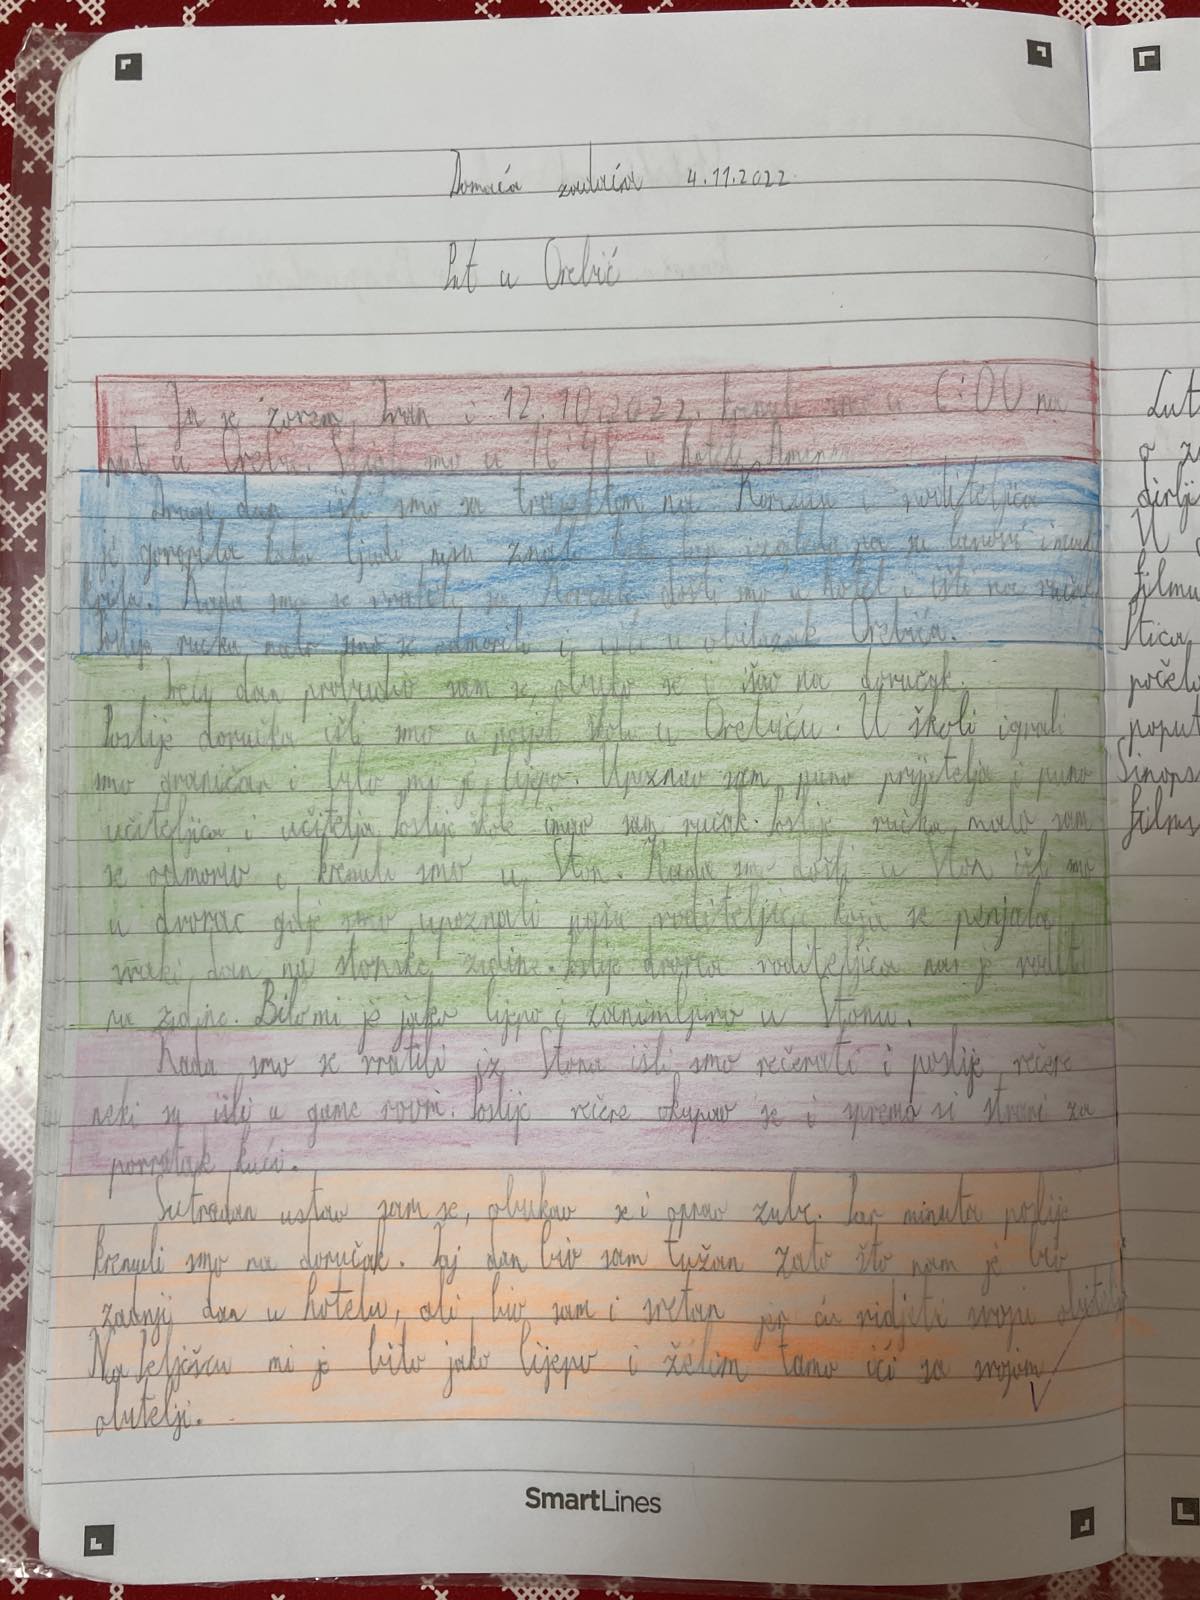 Domaća zadaća 4.11.2022.
Put u Orebić
Ja se zovem Ivan i 12.10.2022. krenuli smo u 6:00 na
put u Orebić. Stigli smo u u hotel
Drugi dan išli smo sa trajektom na Korčulu i voditeljica
je govorila kako ljudi nisu znali kako lav izgleda pa su
krila. Kada smo se vratili sa Korčule došli smo u hotel i išli na ručak.
Poslije ručka malo smo se odmorili i išli u obilazak Orebića.
Treći dan probudio sam se, obuko se i išao na doručak.
Poslije doručka išli smo u posjet školi u Orebiću. U školi igrali
smo graničar i bilo mi je lijepo. Upoznao sam puno prijatelja i puno
učiteljica i učitelja. Poslije škole imao sam ručak. Poslije ručka malo sam
se odmorio i krenuli smo u Ston. Kada smo došli u Ston išli smo
u dvorac gdje smo upoznali voditeljicu koja se penjala
svaki dan na stonske zidine. Poslije dvorca voditeljica nas je vodila
na zidine. Bilo mi je jako lijepo i zanimljivo u Stonu.
Kada smo se vratili iz Stona išli smo večerati i poslije večere
neki su išli u game room. Poslije večere okupao se i spremo si stvari za
povratak kući.
Sutradan ustao sam se, obukao se i oprao zube. Par minuta poslije
krenuli smo na doručak. Taj dan bio sam tužan zato što nam je bio
zadnji dan u hotelu, ali bio sam i sretan jer ću vidjeti svoju obitelj.
Na Pelješcu mi je bilo jako lijepo i želim tamo ići sa svojom
obitelji.
SmartLines